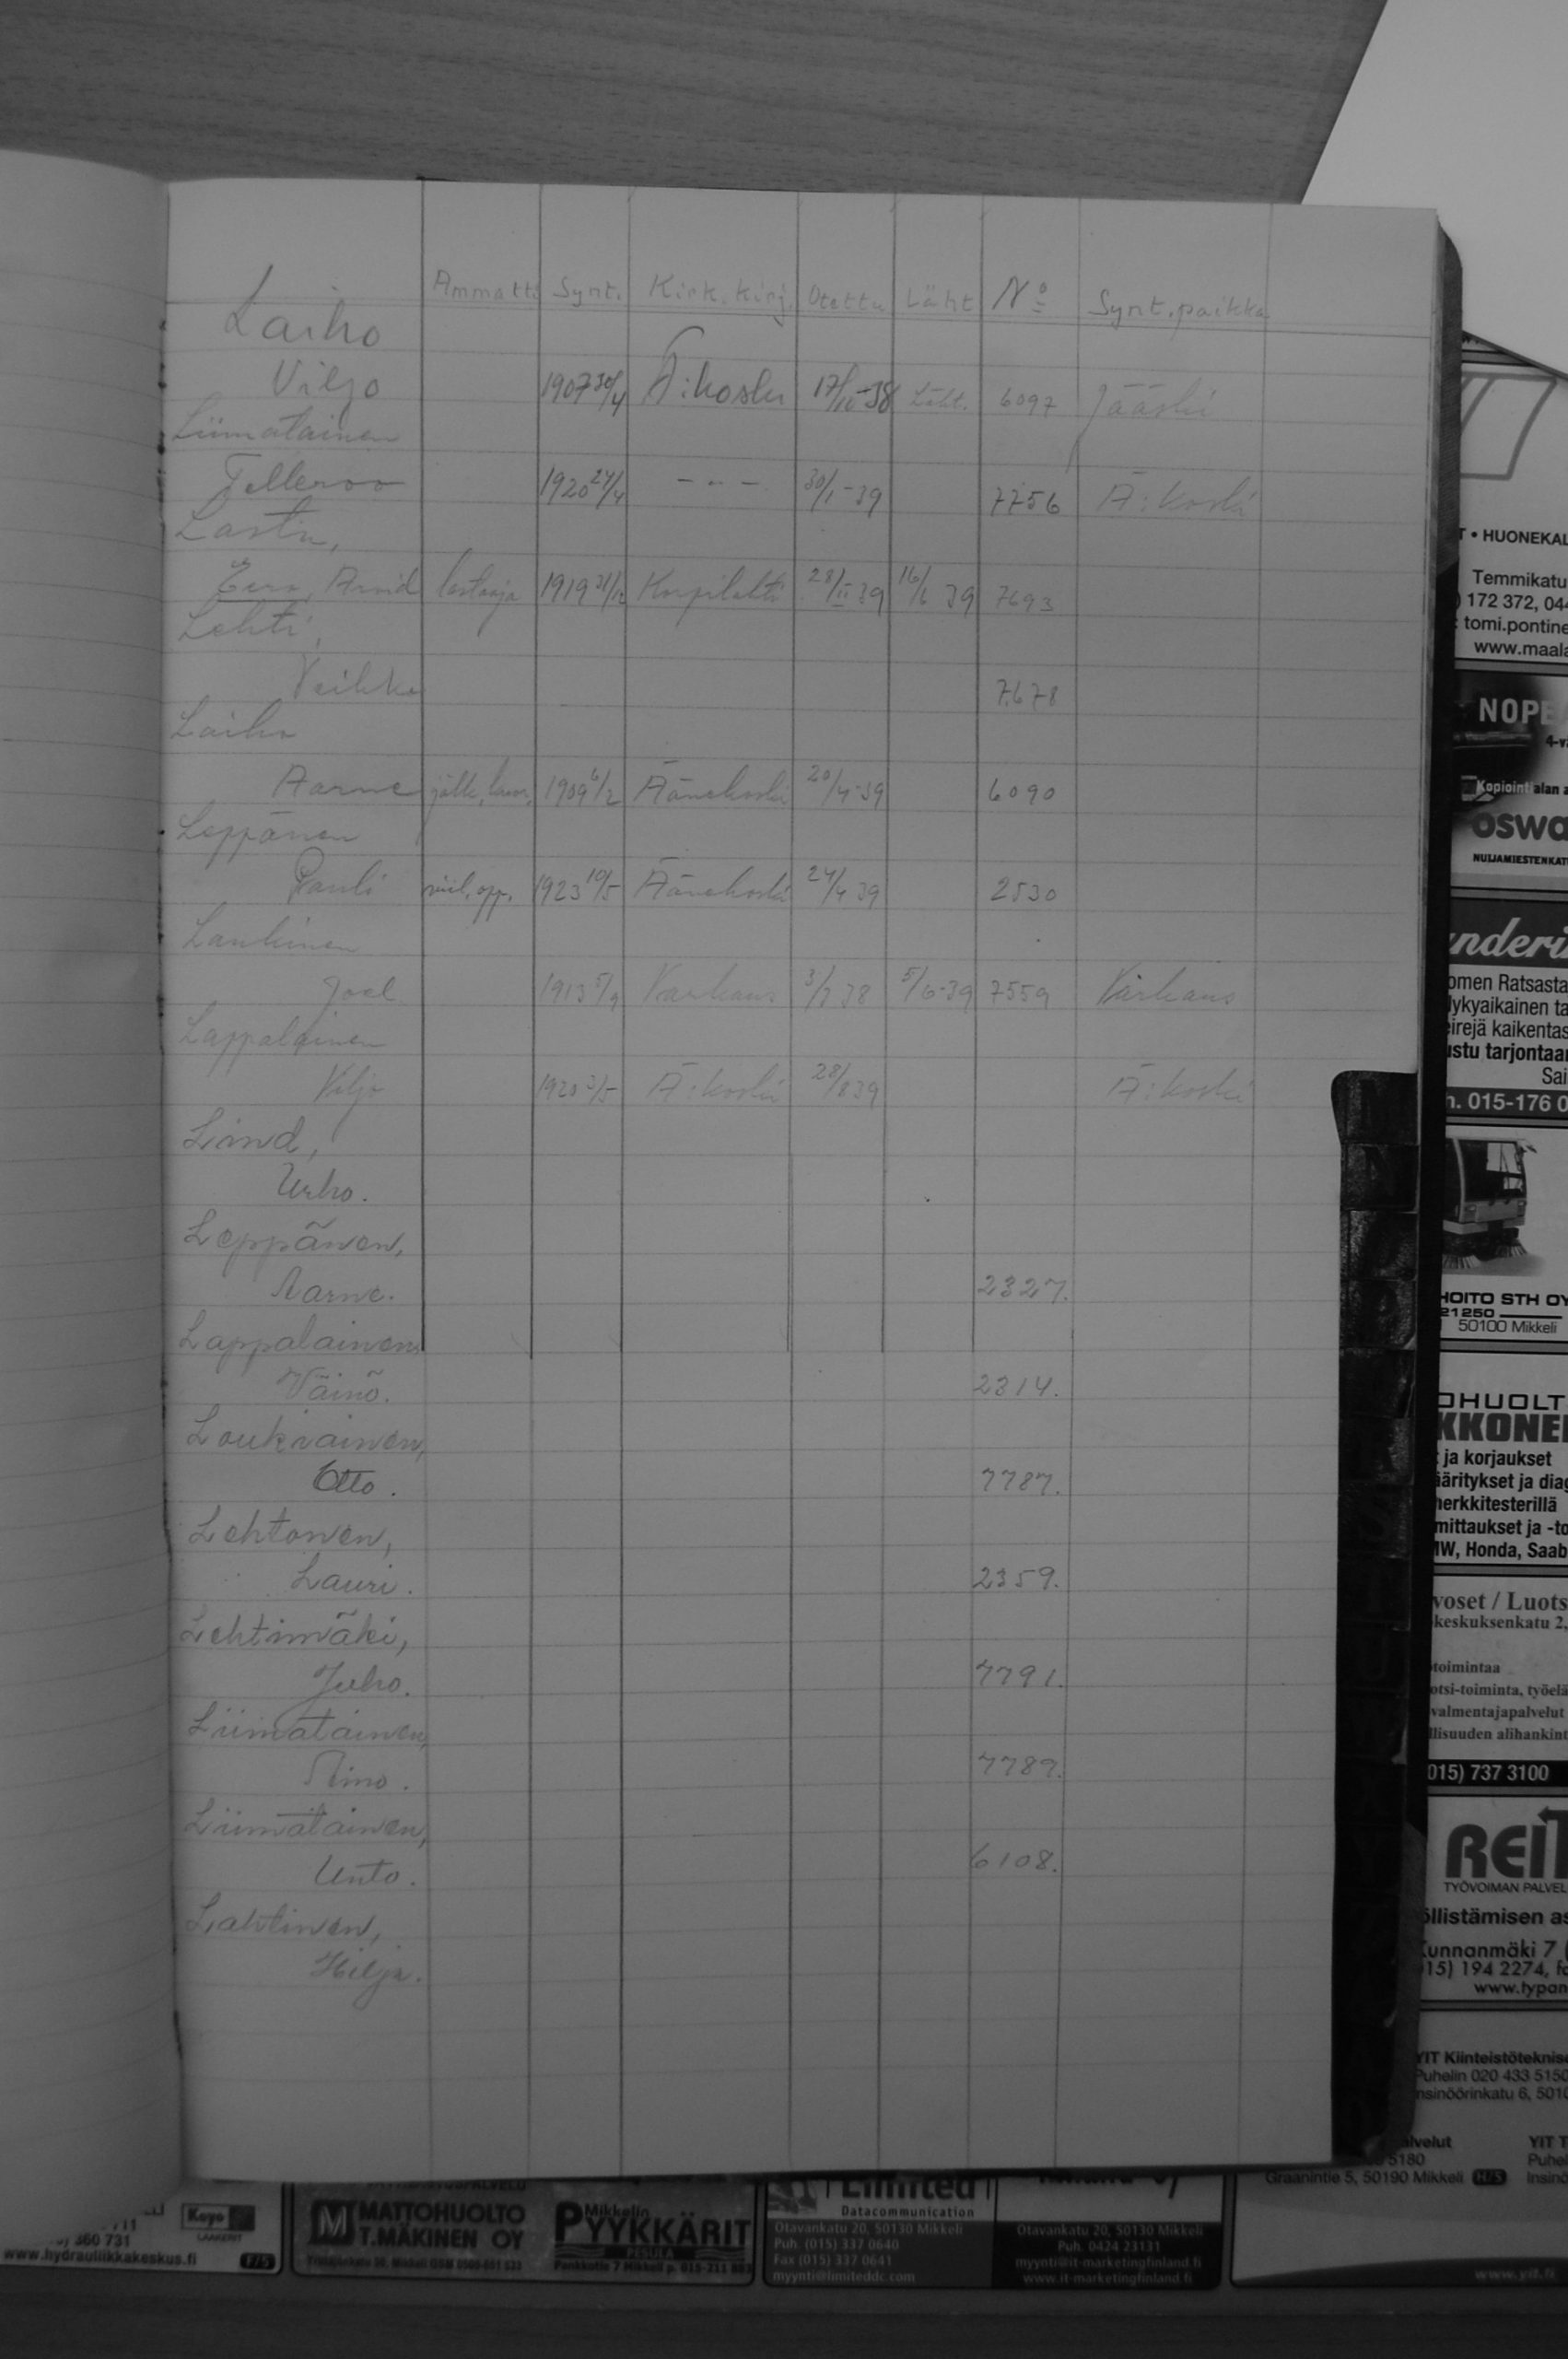 Ammatti Synt. Kirk. kirj. Otettu Läht. No Synt. paikka
Laiho
Viljo 1907 30/4 Ä:koski 17/10-38 Läht. 6097 Jääski
Liimatainen
Tellervo 1920 24/4 - " - 30/1-39 7756 Ä:koski
Lastu,
Eero, Arvid lastaaja 1919 31/12 Korpilahti 28/II 39 16/6 39 7693
Lehti,
Veikko 7678
Laiho
Aarne 1909 6/2 Äänekoski 20/4-39 6090
Leppänen
Pauli viil. opp. 1923 10/5 Äänekoski 24/4 39 2530
Laukinen
Joel 1913 5/9 Varkaus 3/7 38 5/6-39 7559 Varkaus
Lappalainen
Viljo 1920 3/5 Ä:koski 28/8 39 Ä:koski
Lind,
Urho.
Leppänen,
Aarne. 2327.
Lappalainen,
Väinö. 2314.
Loukiainen,
Otto. 7787.
Lehtonen,
Lauri. 2359.
Lehtimäki,
Juho. 7791.
Liimatainen,
Aino. 7789.
Liimatainen,
Unto. 6108.
Lahtinen,
Hilja.
T • HUONEKAL
Temmikatu
) 172 372, 044
tomi.pontine
www.maala
NOPE
4-v
Kopiointialan a
oswa
NUIJAMIESTENKATU
nderi
omen Ratsasta
lykyaikainen ta
eirejä kaikentas
ustu tarjontaan
Sai
n. 015-176 0
HOITO STH OY
21250
50100 Mikkeli
OHUOLT
KKONEN
t ja korjaukset
ääritykset ja diag
herkkitesterillä
mittaukset ja -to
MW, Honda, Saab
voset / Luots
keskuksenkatu 2,
toimintaa
otsi-toiminta, työelä
valmentajapalvelut
llisuuden alihankint
015) 737 3100
REIT
TYÖVOIMAN PALVEL
öllistämisen as
Kunnanmäki 7
15) 194 2274, fa
www.typan
YIT Kiinteistöteknise
Puhelin 020 433 5150
nsinöörinkatu 6, 5010
alvelut YIT T
5180 Puhel
Graanintie 5, 50190 Mikkeli H/S Insinö
www.yit.fi
Koyo
LAAKERIT
360 731
www.hydrauliikkakeskus.fi F/S
M MATTOHUOLTO
T.MÄKINEN OY
Mikkelin
PYYKKÄRIT
PESULA
Pankkotie 7 Mikkeli p. 015-211
Limited
Datacommunication
Otavankatu 20, 50130 Mikkeli
Puh. (015) 337 0640
Fax (015) 337 0641
myynti@limiteddc.com
Otavankatu 20, 50130 Mikkeli
Puh. 0424 23131
myynti@it-marketingfinland.fi
www.it-marketingfinland.fi